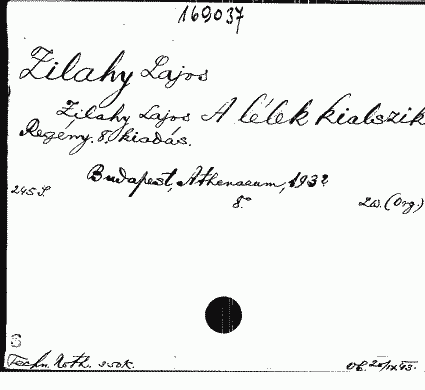 169037
Zilahy Lajos
Zilahy Lajos A lélek kialszik
Regény. 8. kiadás.
Budapest, Athenaeum, 1932
245 S. 8.° Lw. (Org.)
S
Techn. Noth. 350K.